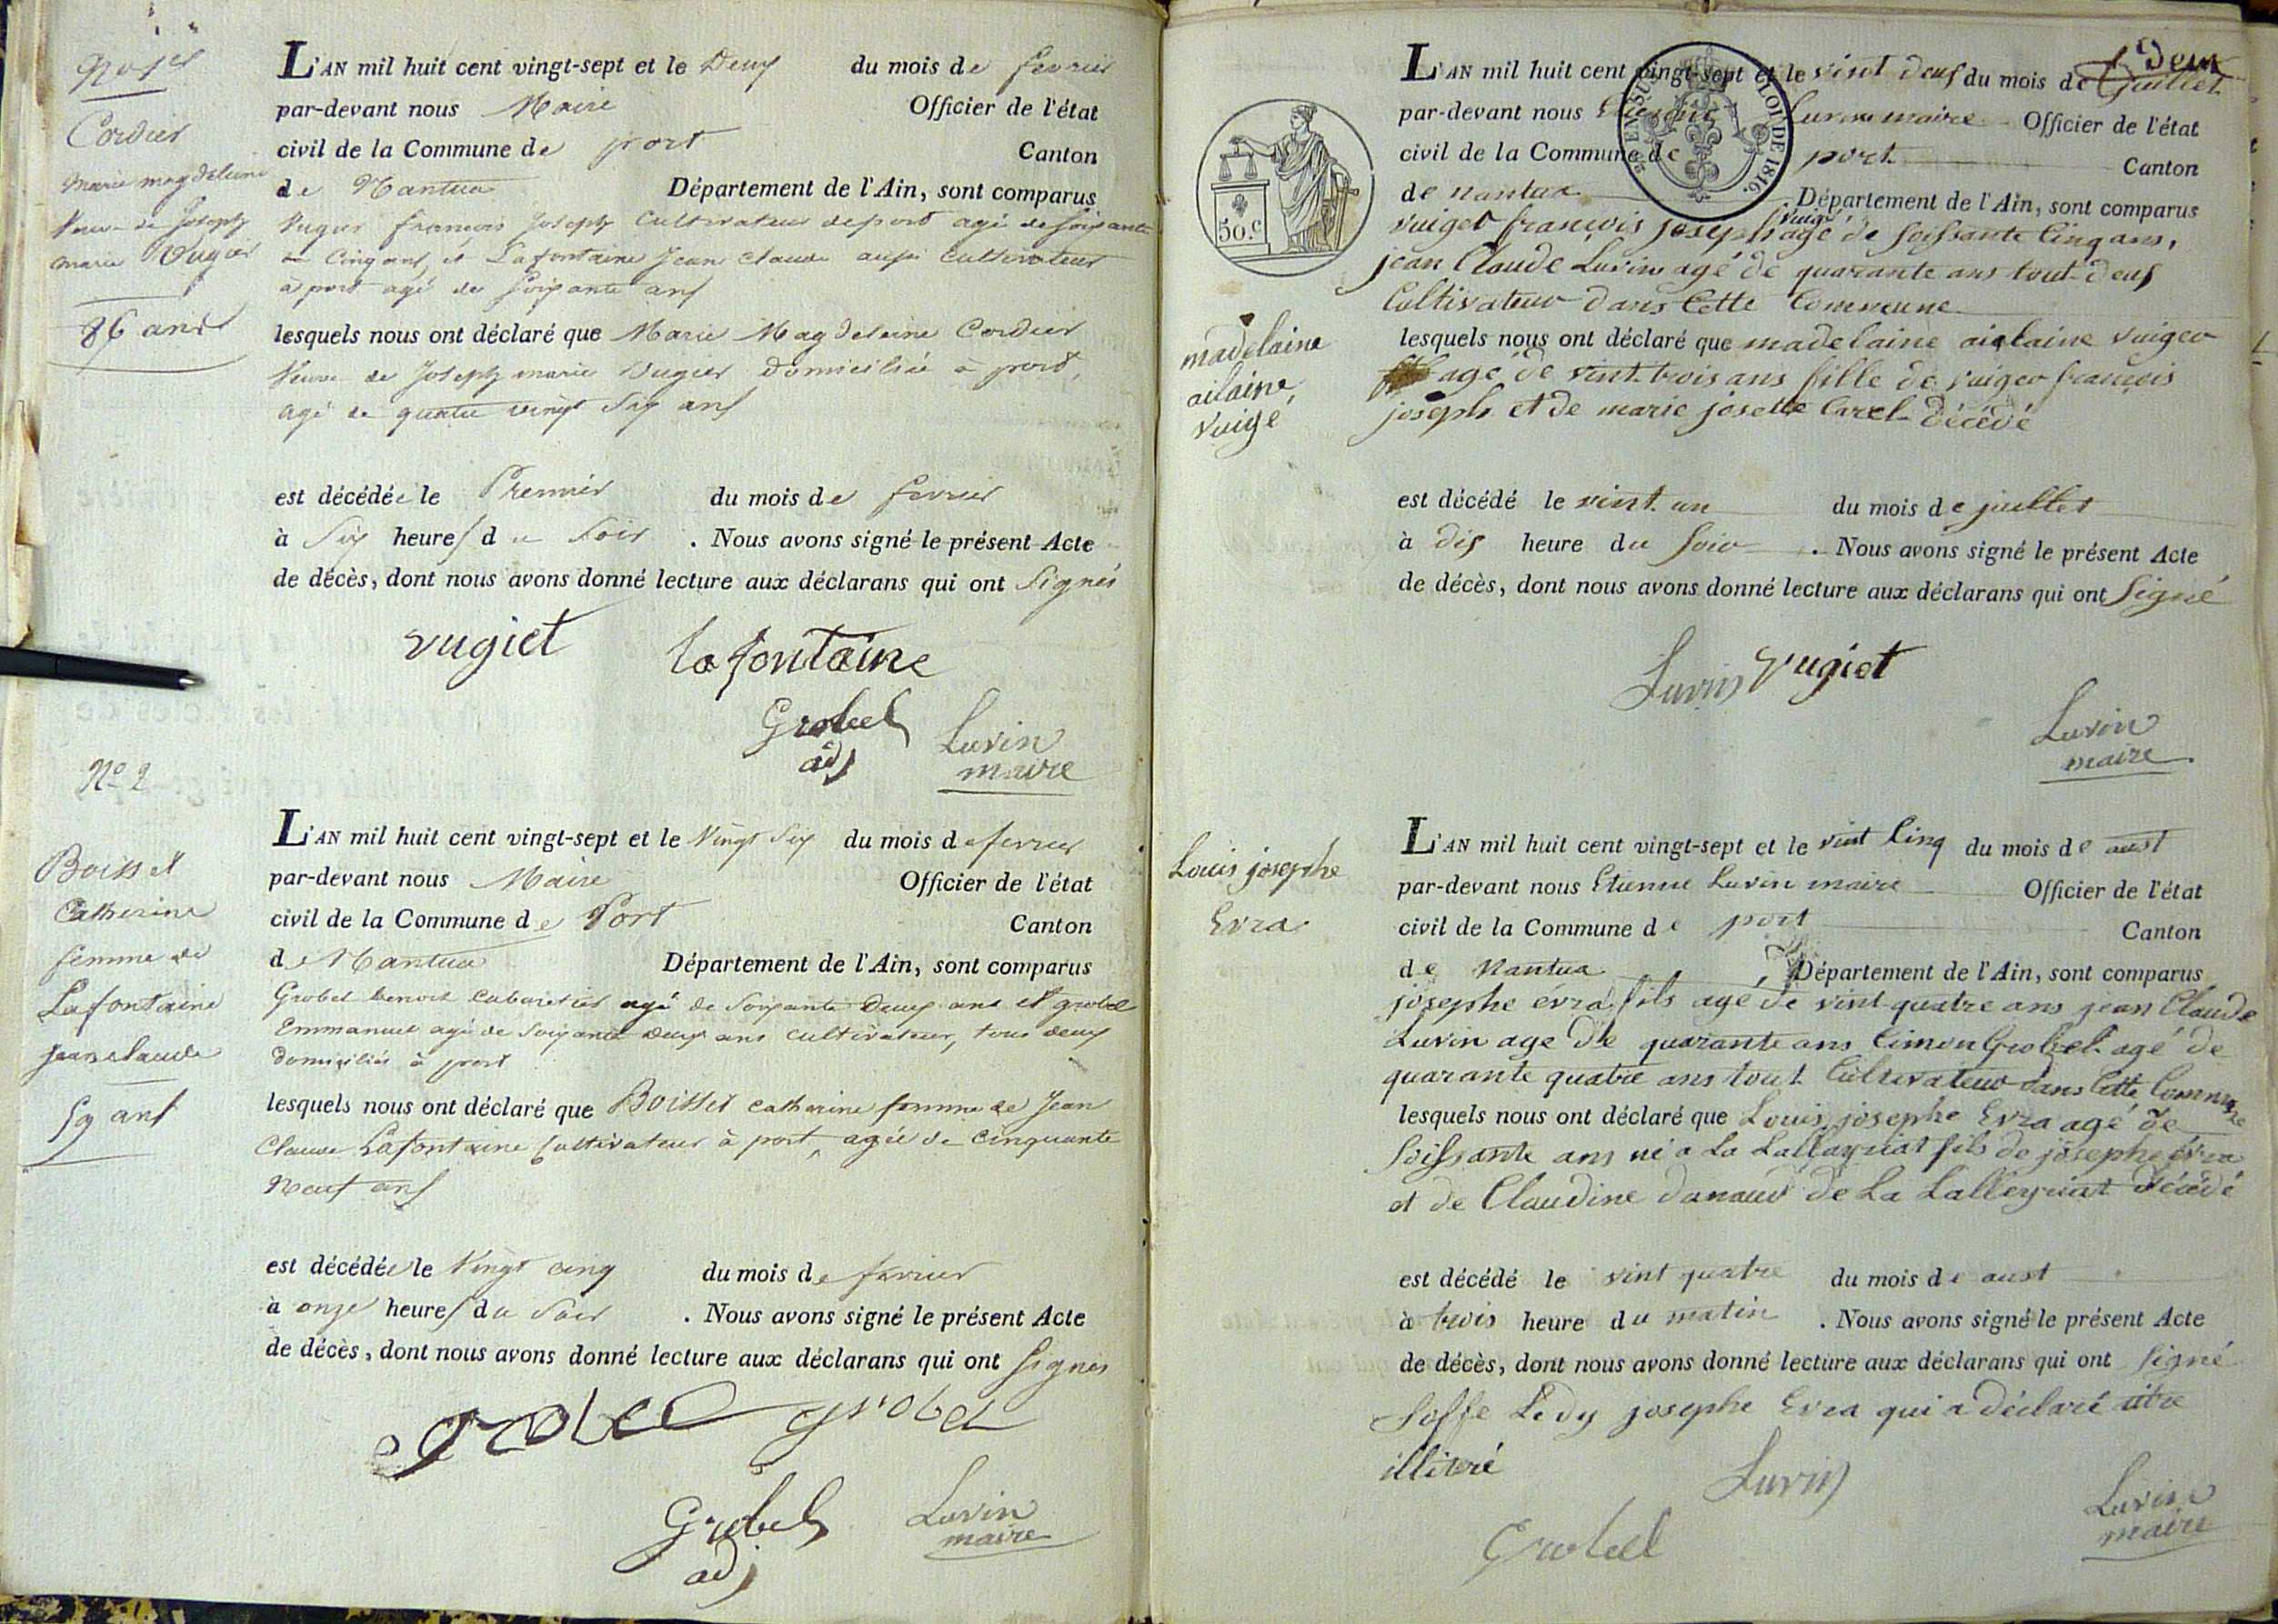 No 1er
Cordier
Marie magdeleine
Veuve de Joseph
marie Vugier
86 ans
L'AN mil huit cent vingt-sept et le Deux du mois de fevrier
par-devant nous Maire Officier de l'état
civil de la Commune de port Canton
de Nantua Département de l'Ain, sont comparus
Vugier françois Joseph Cultivateur deport agé de soixante
Cinq ans, et Lafontaine Jean claude aussi Cultivateur
a port agé de soixante ans
lesquels nous ont déclaré que Marie Magdeleine Cordier
Veuve de Joseph marie Vugier Domiciliée à port,
agé de quatre vingt six ans
est décédée le Premier du mois de fevrier
à Six heures du Soir . Nous avons signé le présent Acte
de décès, dont nous avons donné lecture aux déclarans qui ont Signés
vugiet lafontaine
Grobel Luvin
adj maire
No 2
Boisset
Catherine
femme de
Lafontaine
jean claude
59 ans
L'AN mil huit cent vingt-sept et le Vingt Six du mois de fevrier
par-devant nous Maire Officier de l'état
civil de la Commune de Port Canton
de Nantua Département de l'Ain, sont comparus
Grobel benoit cabaretier agé de Soixante Deux ans et grobel
Emmanuel agé de Soixante deux ans cultivateur, tous deux
domiciliés à port
lesquels nous ont déclaré que Boisset catherine femme de Jean
Claude Lafontaine Cultivateur à port, agée de cinquante
Neuf ans
est décédée le Vingt cinq du mois de fevrier
à onze heures du Soir . Nous avons signé le présent Acte
de décès, dont nous avons donné lecture aux déclarans qui ont Signés
grobel grobel
Grobel Luvin
adj maire
Deux
L'AN mil huit cent vingt-sept et le vint deus du mois de juillet
par-devant nous Etienne Luvin maire Officier de l'état
civil de la Commune de port Canton
de nantua Département de l'Ain, sont comparus
EN SUS LOI DE 1816.
50.c
vuiget françois joseph agé de soissante Cinq ans,
jean Claude Luvin agé de quarante ans tout deus
Cultivateur dans Cette Commune
madelaine
ailaine,
vuige
lesquels nous ont déclaré que madelaine ailaine vuiget
agé de vint trois ans fille de vuiget françois
joseph et de marie josette Carel décédé
est décédé le vint un du mois de juillet
à dis heure du soir . Nous avons signé le présent Acte
de décès, dont nous avons donné lecture aux déclarans qui ont signé
Luvin vugiet
Luvin
maire
Louis josephe
Evra
L'AN mil huit cent vingt-sept et le vint Cinq du mois de aust
par-devant nous Etienne Luvin maire Officier de l'état
civil de la Commune de port Canton
de Nantua Département de l'Ain, sont comparus
josephe évra fils agé de vint quatre ans jean Claude
Luvin age de quarante ans Cimon Grobel agé de
quarante quatre ans tout Cultivateur dans Cette Commune
lesquels nous ont déclaré que Louis josephe Evra agé de
soissante ans né a La Lalleyriat fils de josephe évra
et de Claudine de La Lalleyriat décédé
est décédé le vint quatre du mois de aust
à trois heure du matin . Nous avons signé le présent Acte
de décès, dont nous avons donné lecture aux déclarans qui ont signé
Soffe Ledy josephe Evra qui a déclaré
illitré
Luvin
Grobel
Luvin
maire